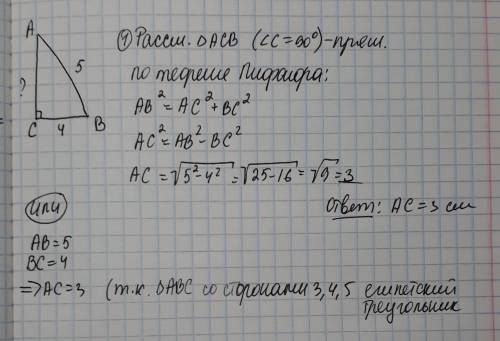 A
5
?
C 4 B
① Рассм. △ACB (∠C=90°)-прям.
по теореме Пифагора:
AB² = AC² + BC²
AC² = AB² - BC²
AC = √5²-4² = √25-16 = √9 = 3
Ответ: AC = 3 см
или
AB=5
BC=4
⇒ AC=3 (т.к. △ABC со сторонами 3,4,5 египетский
треугольник